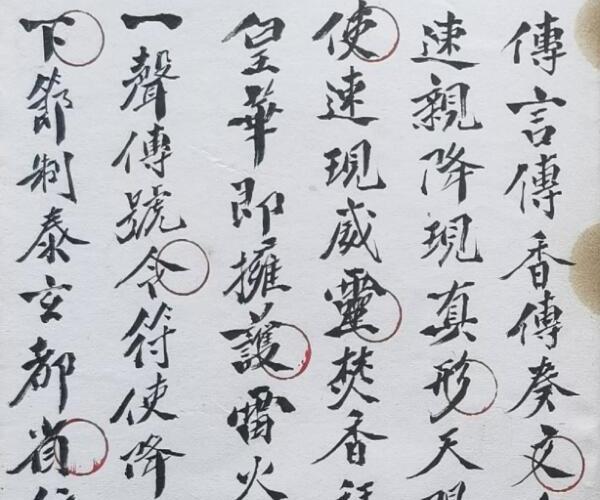 傳言傳香傳奏文
速親降現真形天
使速現威靈焚香
皇華即擁護雷火
一聲傳號令符使降
下節制泰玄都省